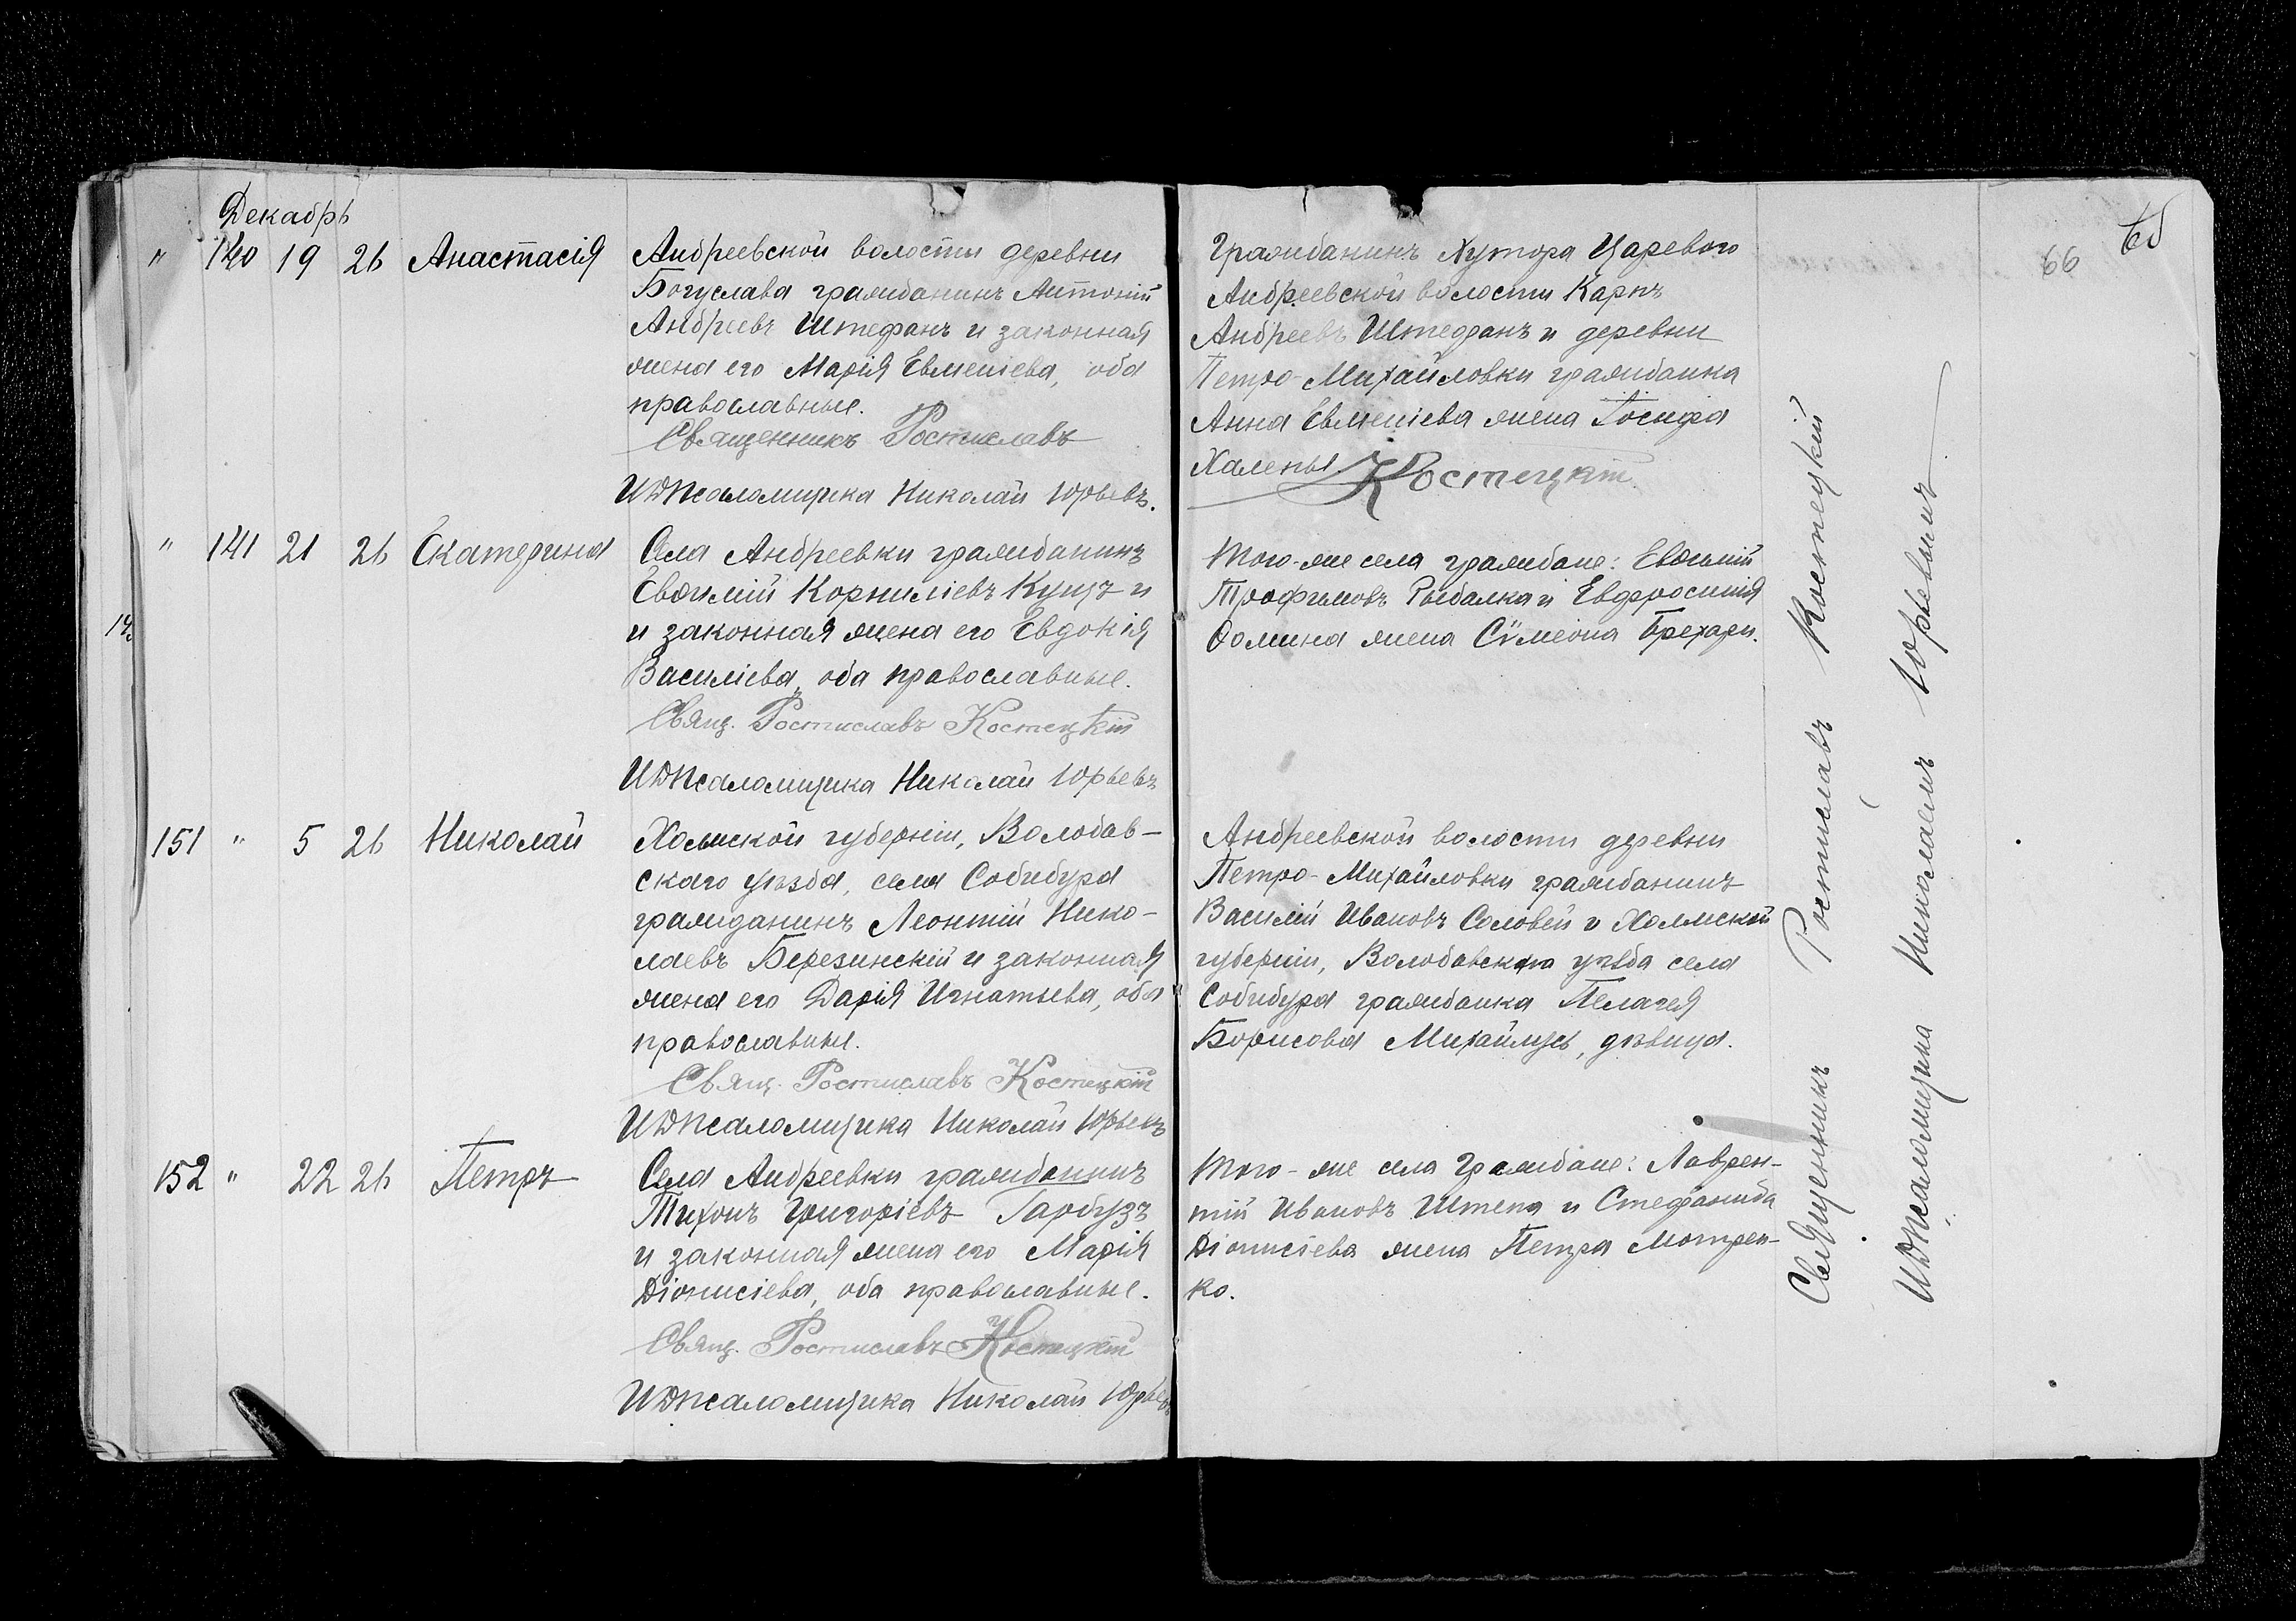 Декабрь
66
" 140 19 26 Анастасія
Андреевской волости деревни
Богуслава гражданинъ Антоній
Андреевъ Штефанъ и законная
жена его Марія Евменіева, оба
православные.
Священникъ Ростиславъ
Гражданинъ Хутора Царевого
Андреевской волости Карпъ
Андреевъ Штефанъ и деревни
Петро-Михайловки гражданка
Анна Евменіева жена Іосифа
Халепы. Костецкій
ИДПсаломщика Николай Юрьевъ.
" 141 21 26 Екатерина
Села Андреевки гражданинъ
Евѳимій Корниліевъ Куцъ и
и законная жена его Евдокія
Василіева, оба православные.
Свящ. Ростиславъ Костецкій
ИДПсаломщика Николай Юрьевъ
Того-же села граждане: Евѳимій
Трофимовъ Рыбалка и Евфросинія
Ѳомина жена Сѵмеона Брехари.
151 " 5 26 Николай
Холмской губерніи, Володав-
скаго уѣзда, села Собибура
гражданинъ Леонтій Нико-
лаевъ Березинскій и законная
жена его Дарія Игнатьева, оба
православные.
Свящ. Ростиславъ Костецкій
ИДПсаломщика Николай Юрьевъ
Андреевской волости деревни
Петро-Михайловки гражданинъ
Василій Ивановъ Соловей и Холмской
губерніи, Володавскаго уѣзда села
Собибура гражданка Пелагея
Борисова Михайлусь, дѣвица.
152 " 22 26 Петръ
Села Андреевки гражданинъ
Тихонъ Григоріевъ Гарбузъ
и законная жена его Марія
Діонисіева, оба православные.
Свящ. Ростиславъ Костецкій
ИДПсаломщика Николай Юрьевъ
Того-же села граждане: Лаврен-
тій Ивановъ Штепа и Стефанида
Діонисіева жена Петра Мотрен-
ко.
Священникъ Ростиславъ Костецкій
ИДПсаломщика Николаемъ Юрьевымъ